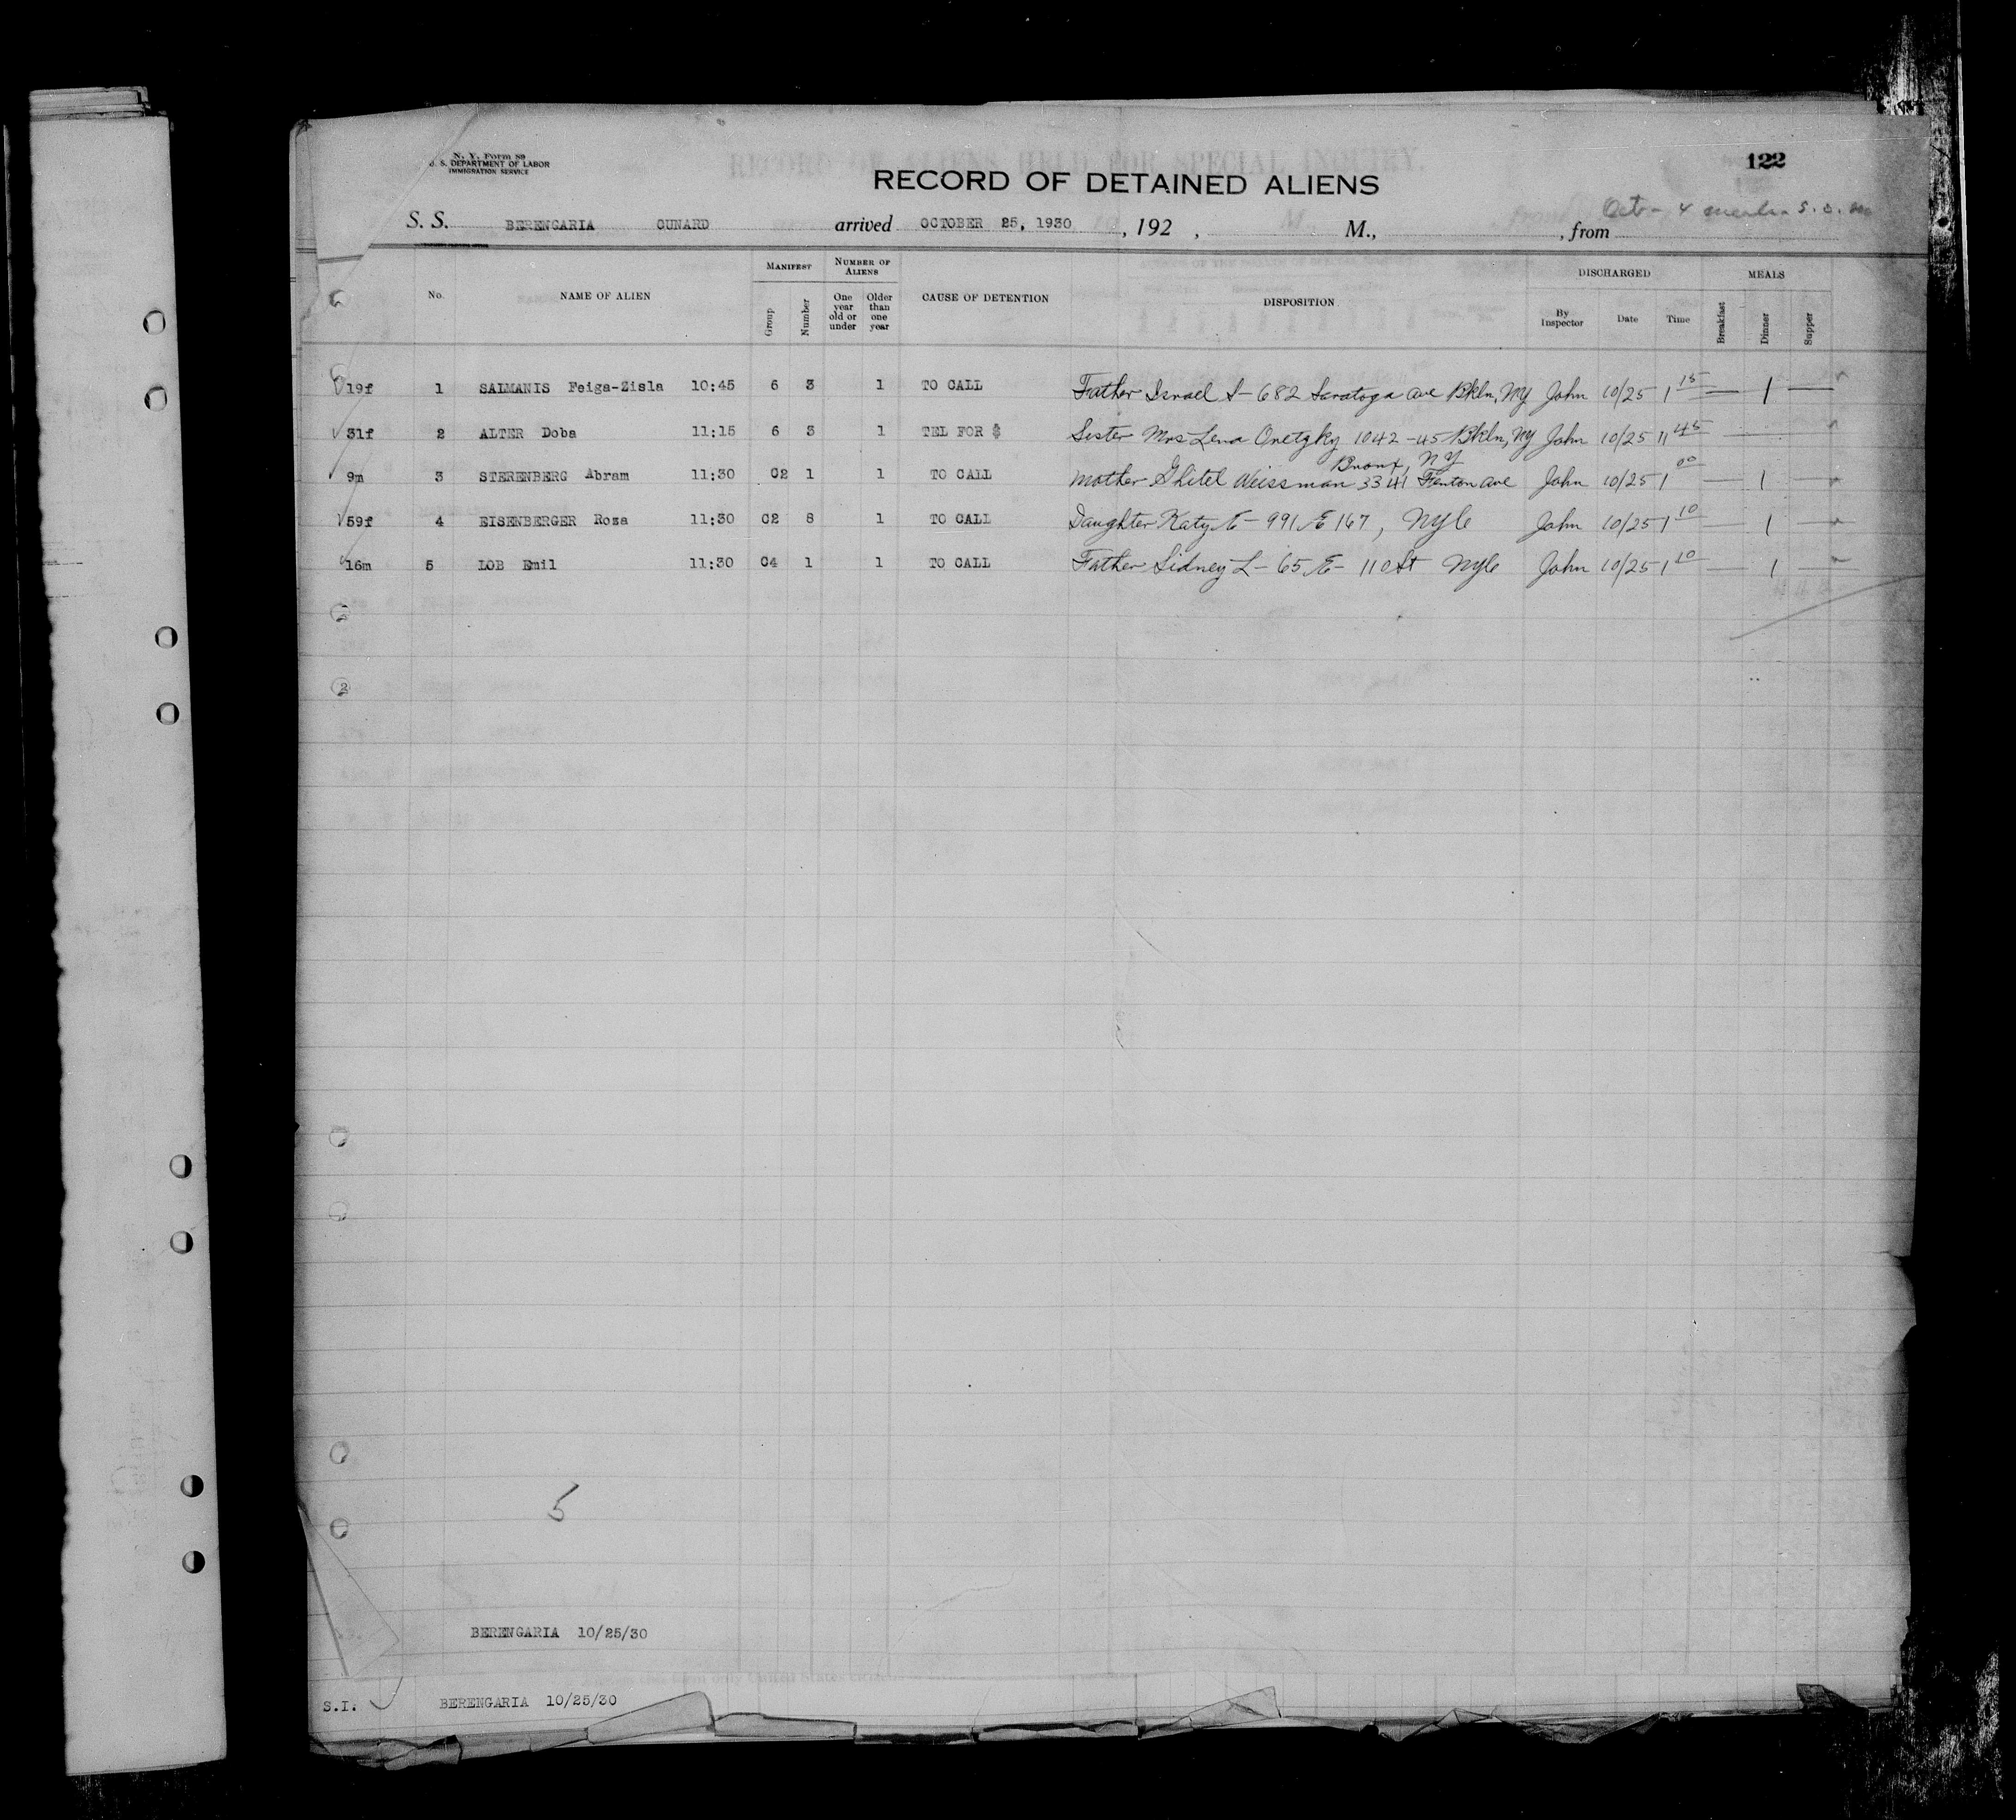 N. Y. Form 89
U. S. DEPARTMENT OF LABOR
IMMIGRATION SERVICE
122
RECORD OF DETAINED ALIENS
S. S. BERENGARIA CUNARD arrived OCTOBER 25, 1930, 192 , M., , from
No. NAME OF ALIEN MANIFEST Group Number NUMBER OF ALIENS One year old or under Older than one year CAUSE OF DETENTION DISPOSITION DISCHARGED By Inspector Date Time MEALS Breakfast Dinner Supper
19f 1 SALMANIS Feiga-Zisla 10:45 6 3 1 TO CALL Father Israel S - 682 Saratoga Ave Bkln, NY John 10/25 1 15 — 1 —
31f 2 ALTER Doba 11:15 6 3 1 TEL FOR $ Sister Mrs Lena 1042 - 45 Bkln, NY John 10/25 11 45 —
Bronx, NY
9m 3 STERENBERG Abram 11:30 C2 1 1 TO CALL Mother Ghitel Weissman 3341 Fenton Ave John 10/25 1 00 — 1 —
59f 4 EISENBERGER Roza 11:30 C2 8 1 TO CALL Daughter Katy E - 991 E 167, NYC John 10/25 1 10 — 1 —
16m 5 LOB Emil 11:30 C4 1 1 TO CALL Father Sidney L - 65 E - 110 St NYC John 10/25 1 10 — 1 —
2
5
BERENGARIA 10/25/30
S.I. BERENGARIA 10/25/30